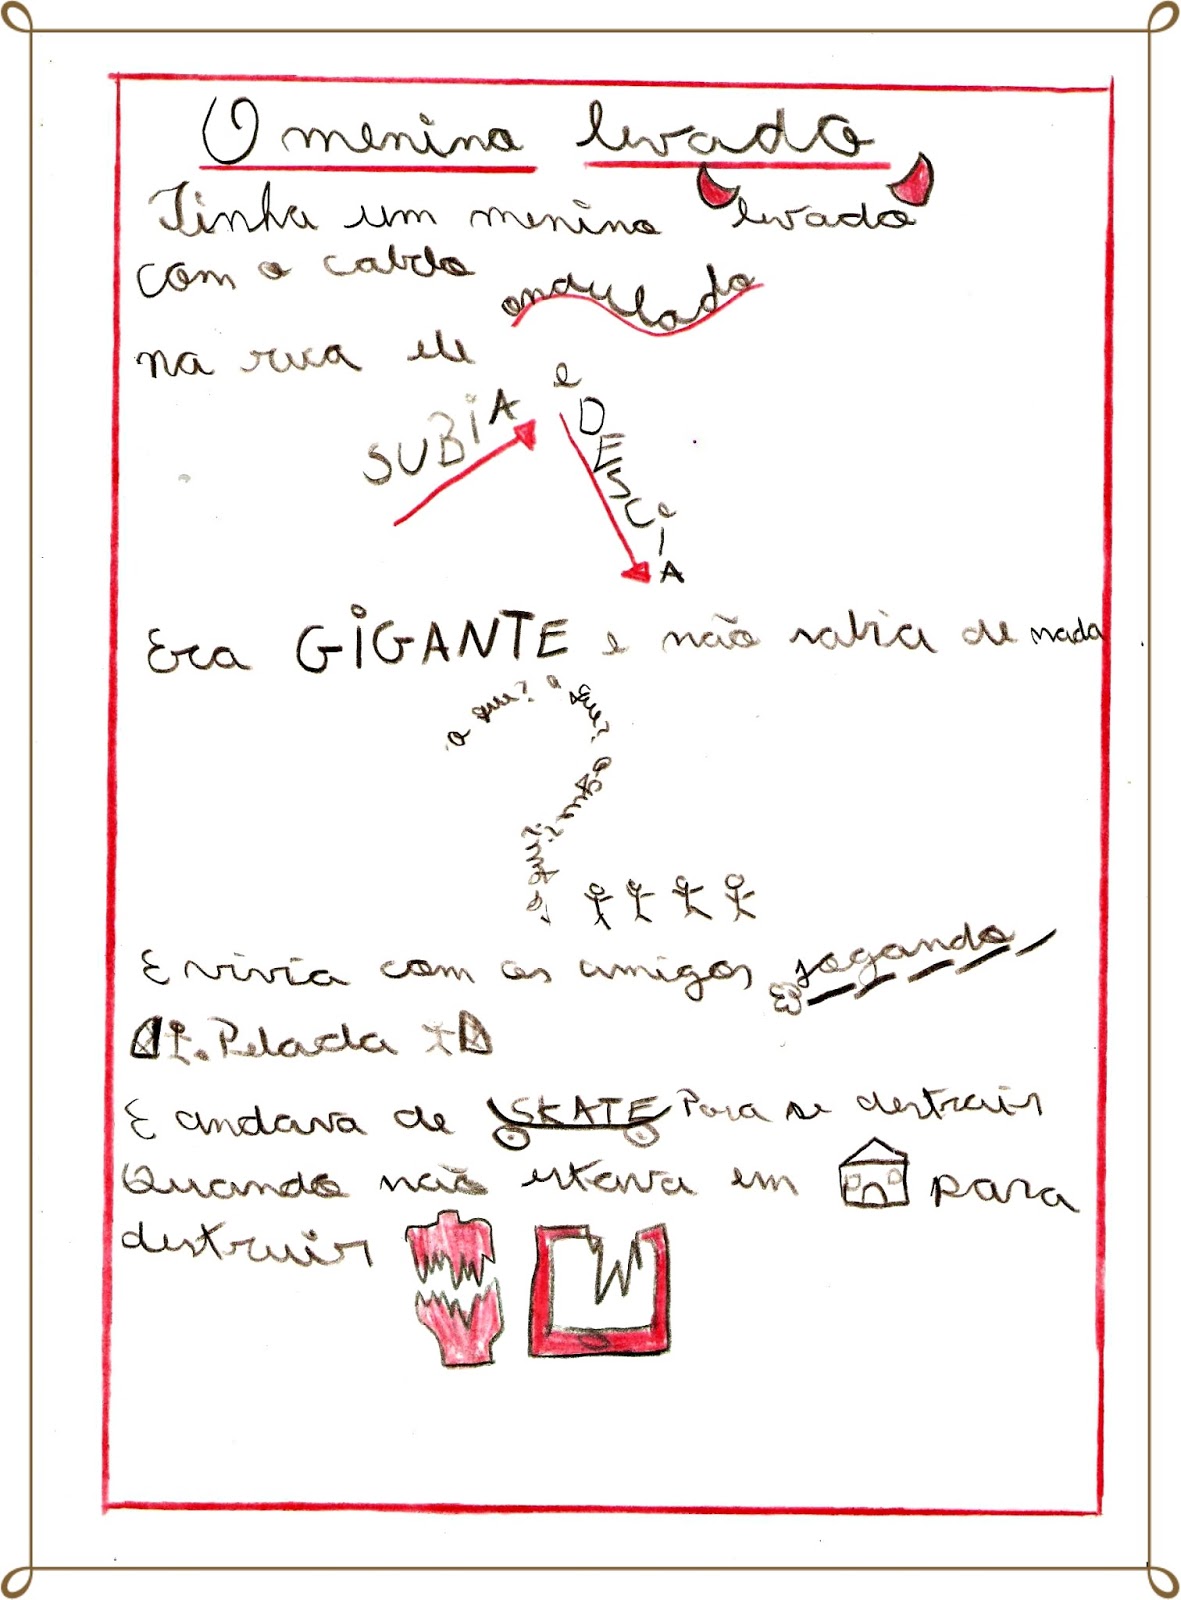 O menino levado
Tinha um menino levado
com o cabelo ondulado
na rua ele
SUBIA e DESCIA
Era GIGANTE e não sabia de nada
o que? o que? o que? o que?
E vivia com os amigos jogando
Pelada
E andava de SKATE Para se destrair
Quando não estava em para
destruir